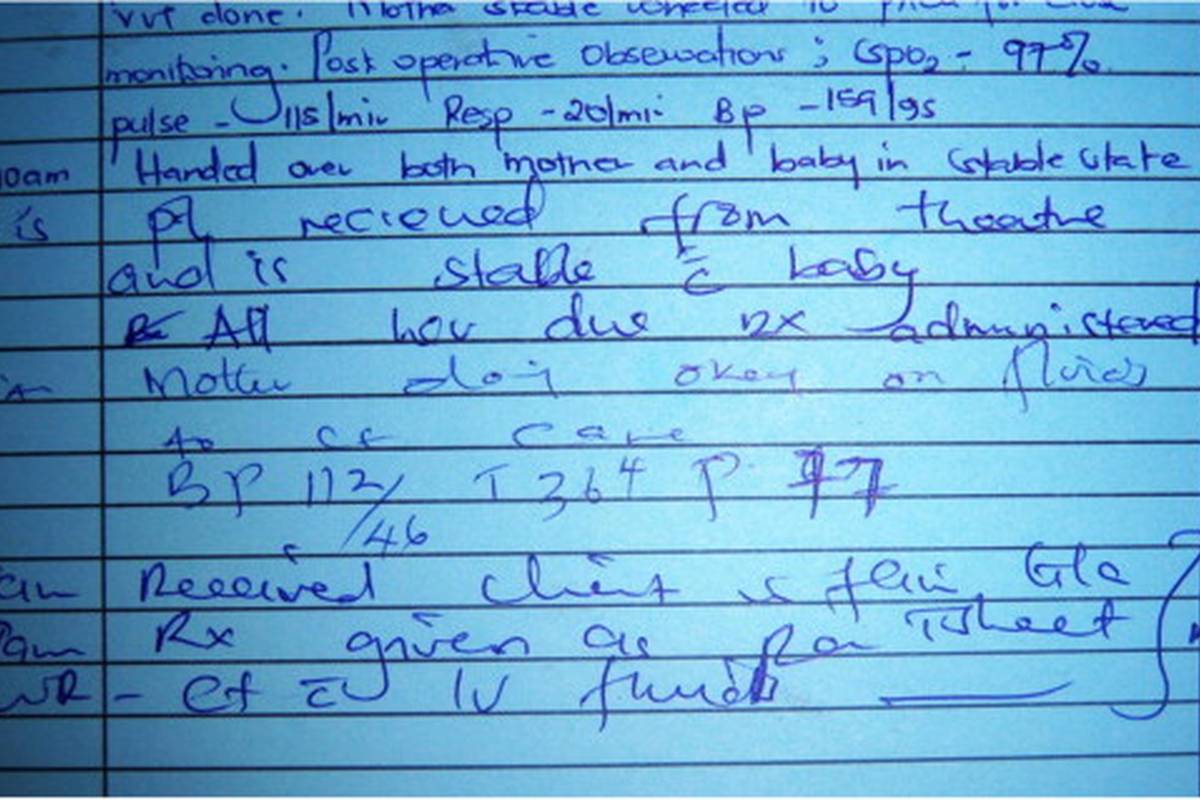 VVF done. Mother stable wheeled to
monitoring. Post operative Observations ; Spo2 - 97%
pulse - 115/min Resp - 20/min Bp - 159/95
0am Handed over both mother and baby in stable state
is pt recieved from theatre
and is stable c̄ baby
All hav due rx administered
Mother doing okey on fluids
to ct care
BP 112/46 T 364 P 77
am Received client is fair, Gle
am Rx given as per Tsheet
WR - ct IV fluids